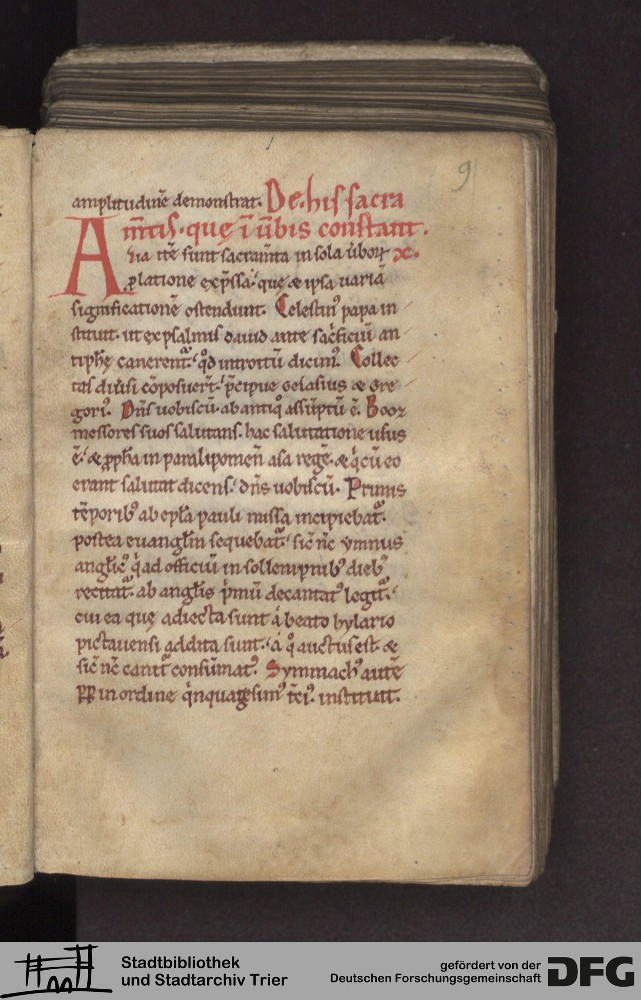 9
amplitudinē demonstrat. De his sacra
m̄tis. quę ī ūbis constant.
Alia itē sunt sacram̄ta in sola ūboꝝ x.
ꝓlatione exp̄ssa. quę & ipsa uariā
significationē ostendunt. Celestinꝰ papa in
stituit. ut ex psalmis dauid ante sac̄ficiū an
tiphę canerent᷑. qd̄ introitū dicimꝰ. Collec
tas diūsi cōposuer̄t. p̄cipue gelasius & gre
gorꝰ. Dn̄s uobiscū. ab antiqͦ assūptū ē. Booz
messores suos salutans. hac salutatione usus
ē. & ꝓpha in paralipomen̄ asa regē. & qͥ cū eo
erant salutat dicens. dn̄s uobiscū. Primis
tēporibꝰ ab epl̄a pauli missa incipiebat᷑.
postea euangl̄m sequebat᷑. sic̄ nc̄ ymnus
anglicꝰ qͥ ad officiū in sollempnibꝰ diebꝰ
recitat᷑. ab angl̄is pͥmū decantatꝰ legit᷑.
cui ea quę adiecta sunt a beato hylario
pictauensi addita sunt. a qͦ auctus est. &
sic̄ nc̄ canit᷑ consūmatꝰ. Symmachꝰ autē
PP in ordine qͥnquagesimꝰ t̄ciꝰ. instituit.
Stadtbibliothek
und Stadtarchiv Trier
gefördert von der
Deutschen Forschungsgemeinschaft
DFG